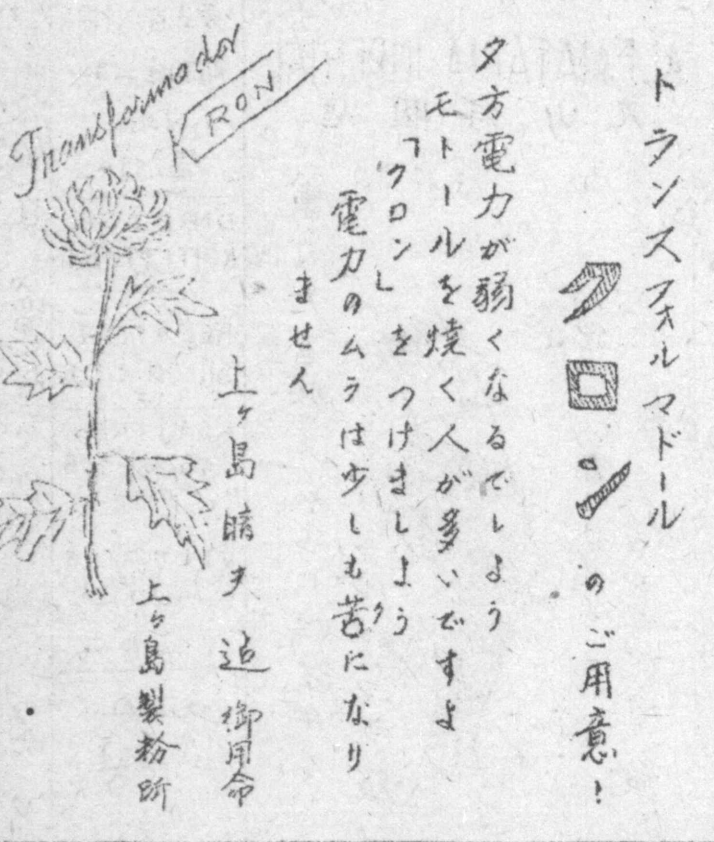 トランスフォルマドール
クロンのご用意！
夕方電力が弱くなるでしよう
モトールを焼く人が多いですよ
「クロン」をつけましよう
電力のムラは少しも苦になり
ません
上ヶ島晴夫 迠御用命
上ヶ島製粉所
Transformador
KRON